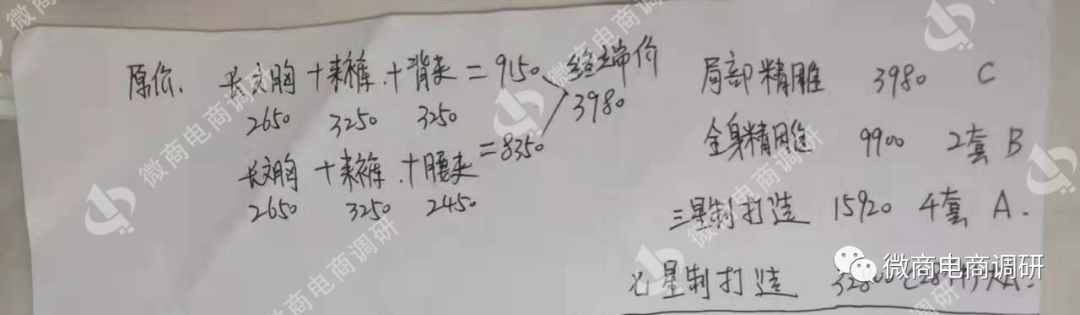 原价、长文胸＋束裤．＋背夹＝9150 终端价
2650 3250 3250 3980
长文胸＋束裤．＋腰夹＝8350
2650 3250 2450
局部精雕 3980 C
全身精雕 9900 2套 B
三星制打造 15920 4套 A．
星制打造
微商电商调研